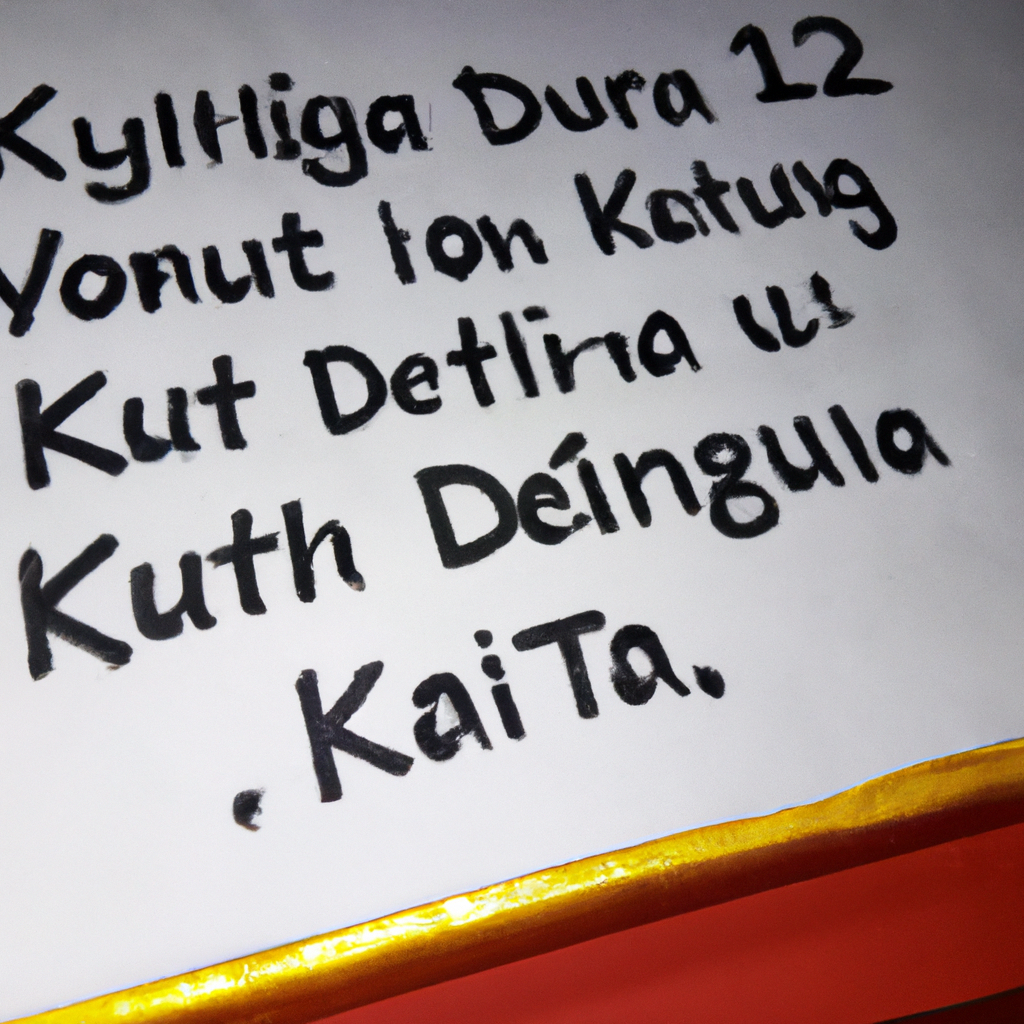 Kylthiga Dura 12
Yonut ton Katung
Kut Detlirra
Kuth Deíngula
. KaiTa.